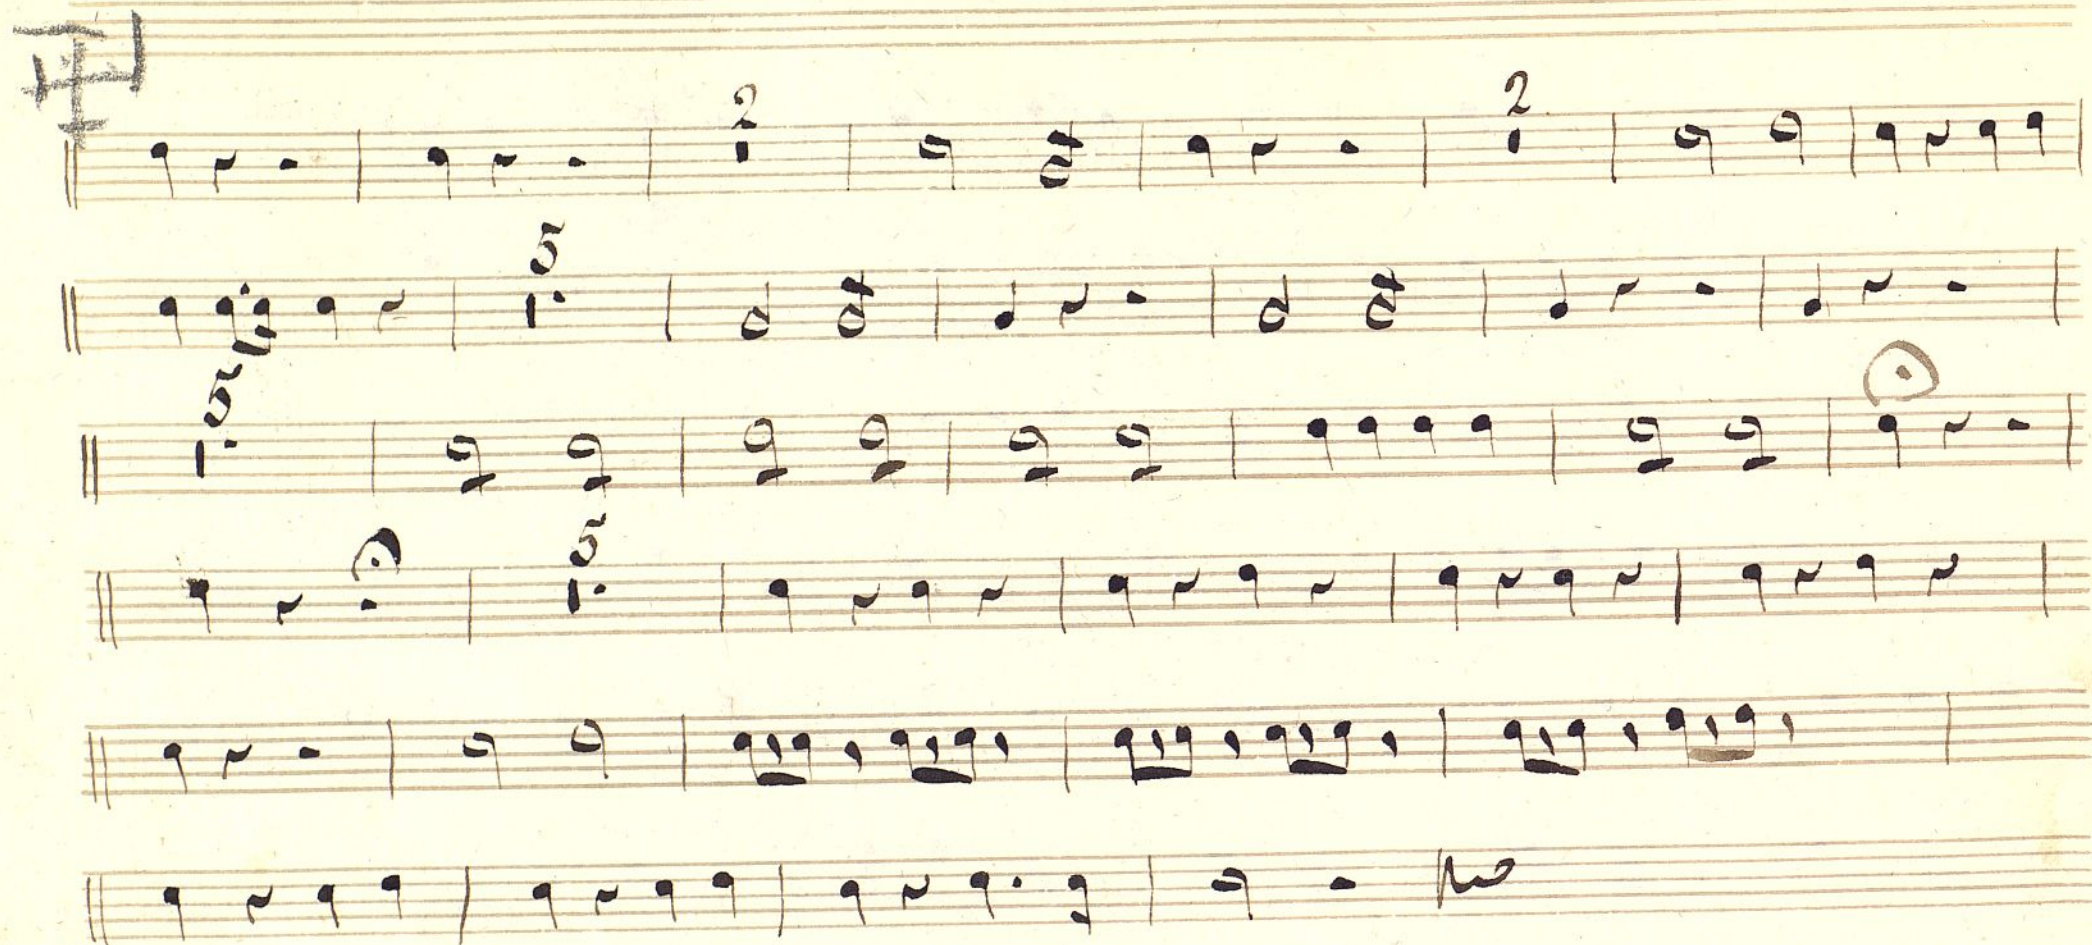 2 2
5
5
5